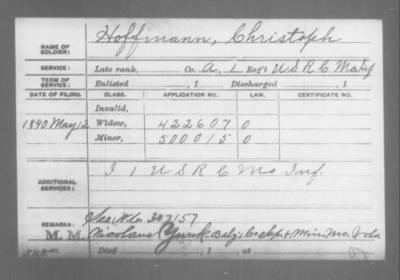 NAME OF SOLDIER: Hoffmann, Christoph
SERVICE: Late rank, Co. A, 1 Reg't U S R C Mo Inf
TERM OF SERVICE: Enlisted , 1 Discharged , 1
DATE OF FILING. CLASS. APPLICATION NO. LAW. CERTIFICATE NO.
Invalid,
1890 May 12 Widow, 422607 0
Minor, 500015 0
ADDITIONAL SERVICES: I 1 U S R C Mo Inf.
See No. 207157
REMARKS: M. M. Nicolaus Bat'y Mo. Vols
Died , 1 , at